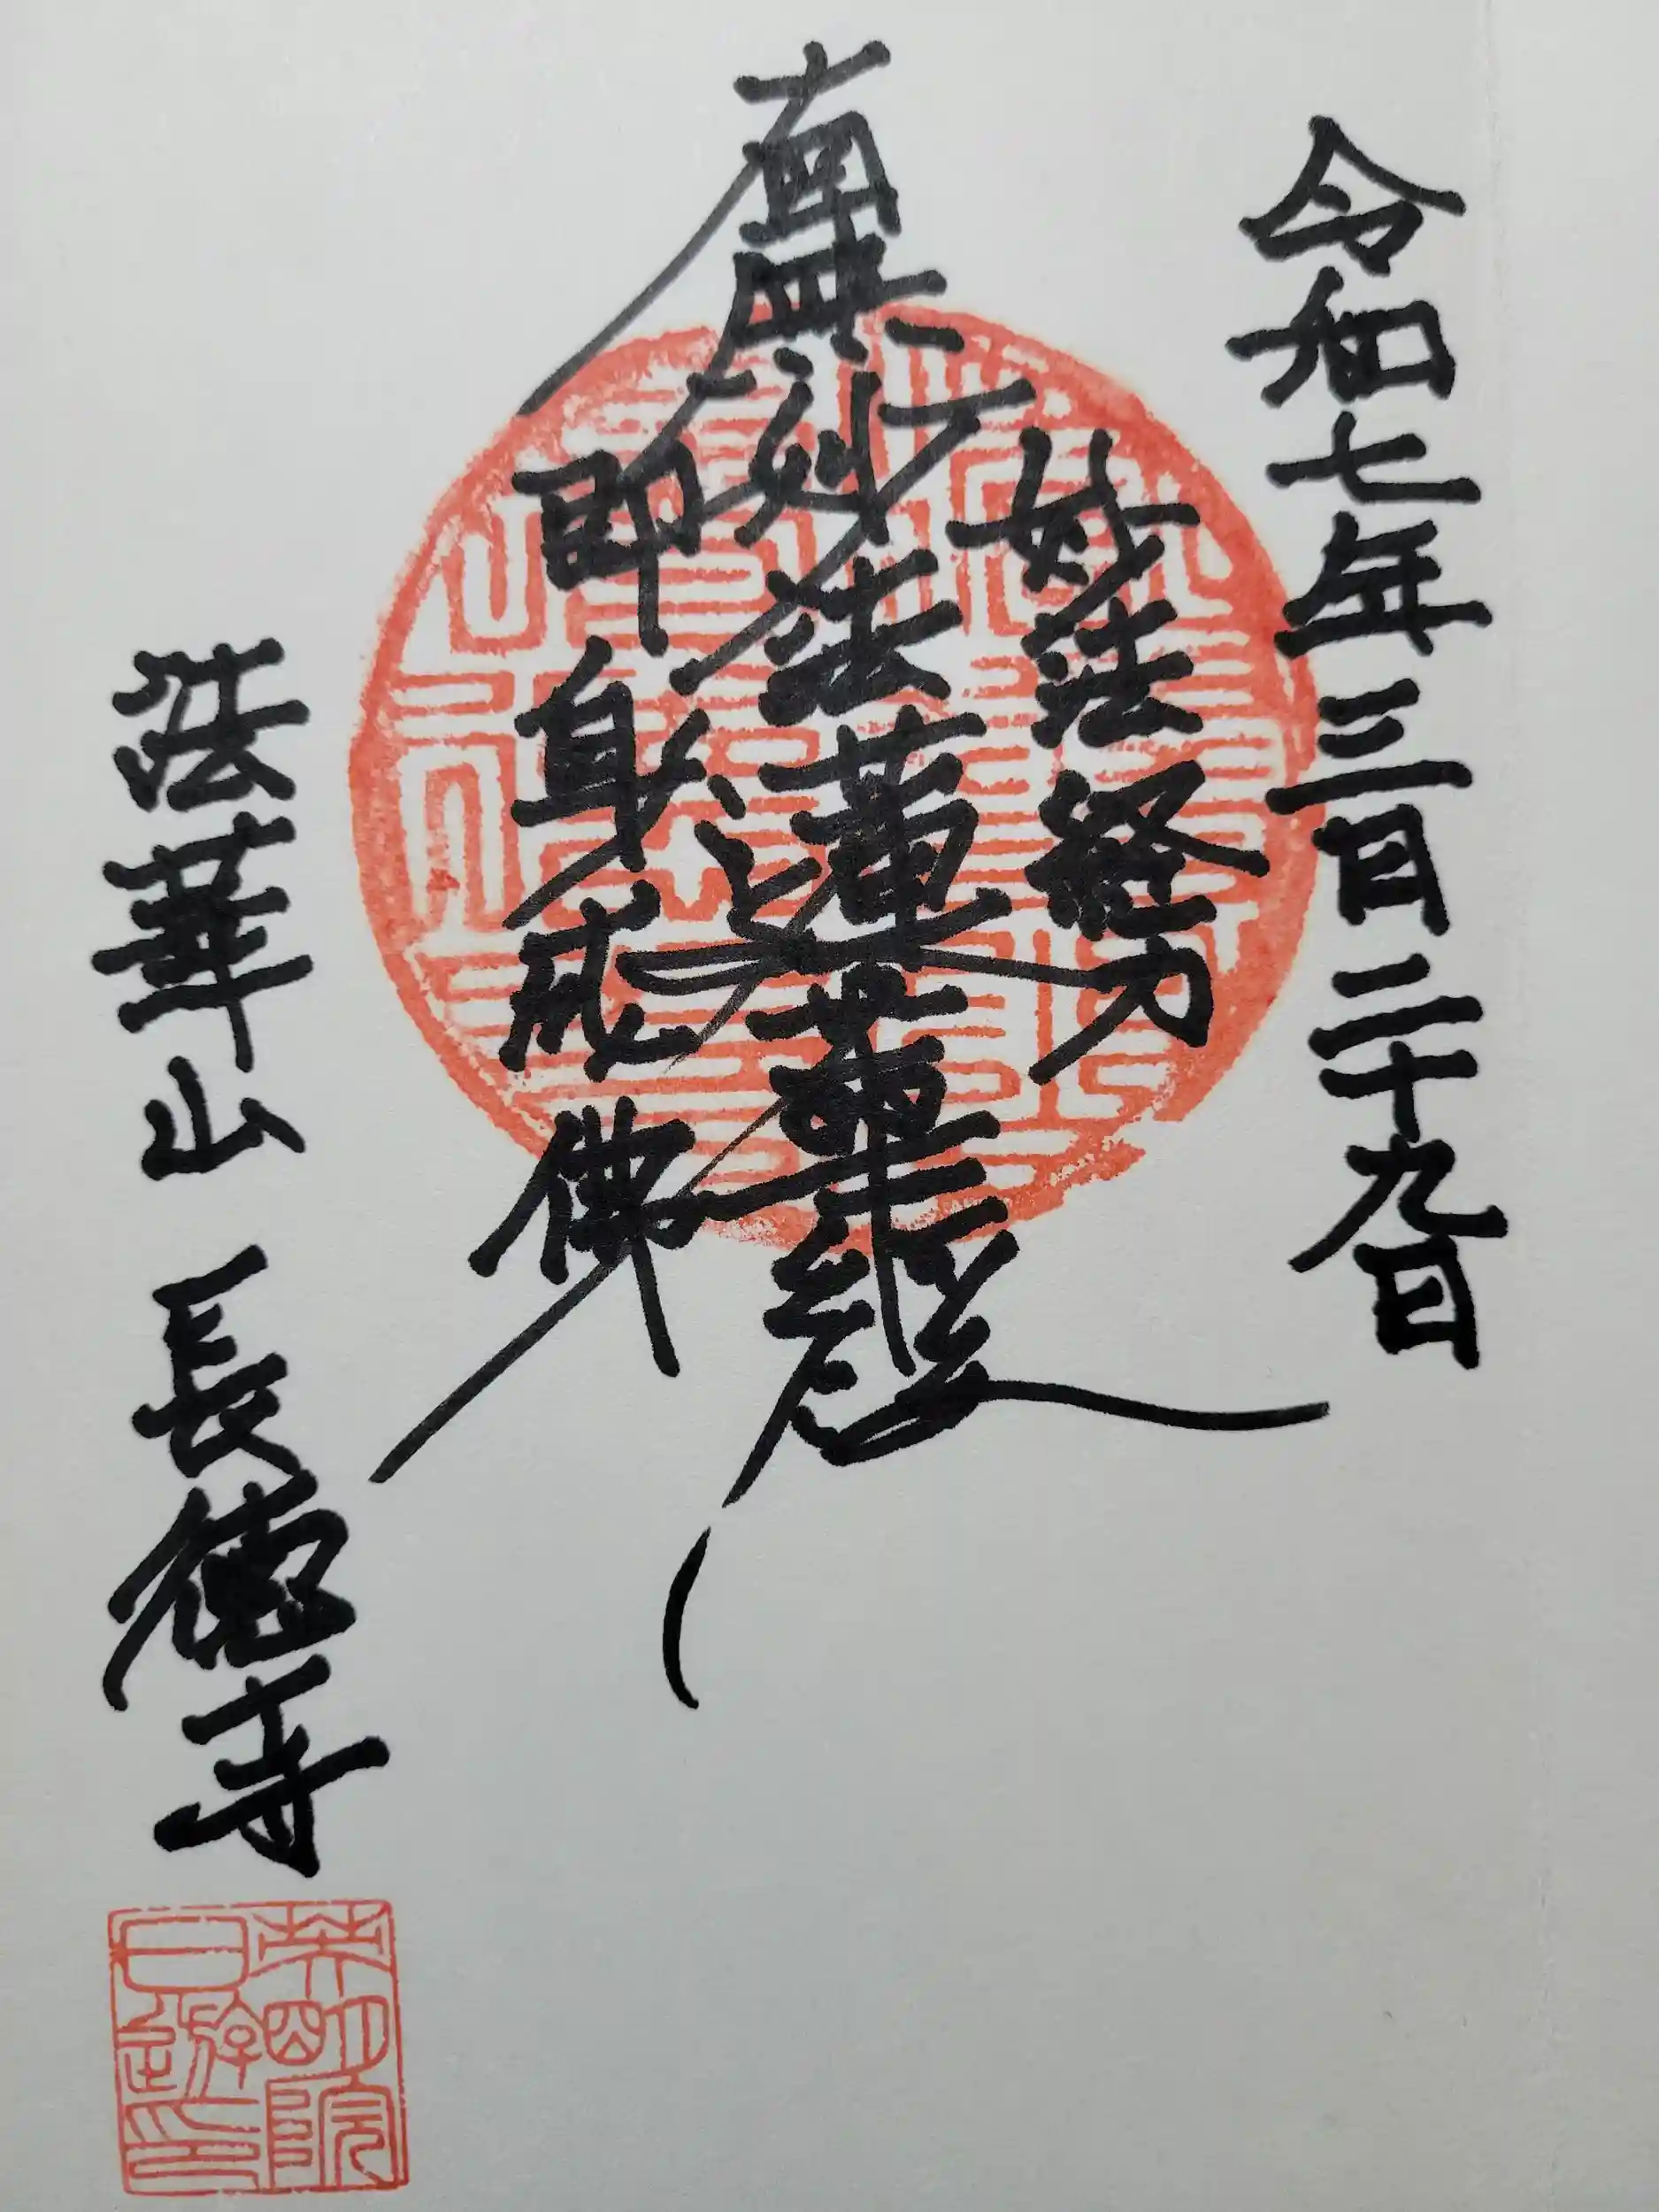 令和七年三月二十九日
妙法経力
南無妙法蓮華経
即身成佛
法華山 長徳寺
栄明院
日遊印